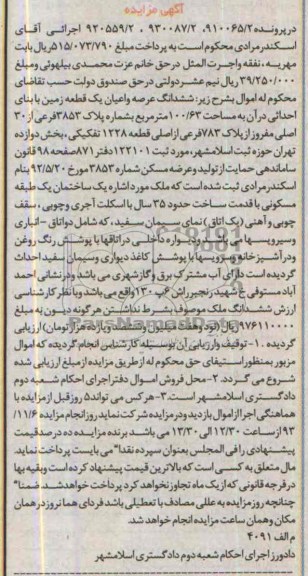 آگهی مزایده
در پرونده ۹۱۰۰۶۵/۲، ۹۳۰۰۸۷/۲ و ۹۲۰۵۵۹/۲ اجرائی آقای
اسکندر مرادی محکوم است به پرداخت مبلغ ۵۱۵/۰۷۳/۷۹۰ ریال بابت
مهریه، نفقه واجرت المثل در حق خانم عزت محمدی بیلهوئی ومبلغ
۳۹/۲۵۰/۰۰۰ ریال نیم عشر دولتی در حق صندوق دولت حسب تقاضای
محکوم له اموال بشرح زیر: ششدانگ عرصه واعیان یک قطعه زمین با بنای
احداثی در آن به مساحت ۱۰۰/۶۳ مترمربع بشماره پلاک ۳۸۵۳ فرعی از ۳۰
اصلی مفروز از پلاک ۷۸۳ فرعی از اصلی قطعه ۱۲۲۸ تفکیکی، بخش دوازده
تهران حوزه ثبت اسلامشهر، مورد ثبت ۱۲۲۱۰۱ دفتر ۸۷۱ صفحه ۹۸ قانون
ساماندهی حمایت از تولید وعرضه مسکن شماره ۳۸۵۳ مورخ ۹۲/۵/۲۰ بنام
اسکندر مرادی ثبت شده است که ملک مورد اشاره یک ساختمان یک طبقه
مسکونی با قدمت ساخت حدود ۳۵ سال با اسکلت آجری وچوبی، سقف
چوبی و آهنی (یک اتاق) نمای سیمان سفید، که شامل دو اتاق - انباری
وسرویسها می باشد ودیواره داخلی در اتاقها با پوشش رنگ روغن
ودر آشپزخانه وسرویسها با پوشش کاغذ دیواری وسیمان سفید احداث
گردیده است دارای آب مشترک برق وگاز شهری می باشد و در نشانی احمد
آباد مستوفی خ شهید رنجبر راش ۶ پ ۱۳۰ واقع می باشد وبا نظر کارشناسی
ارزش ششدانگ ملک موصوف بشرط نداشتن هرگونه دیون به مبلغ
۹۷۶۱۱۰۰۰۰ ریال (نود وهفت میلیون وششصد ویازده هزار تومان) ارزیابی
گردیده. ۱- توقیف وارزیابی آن بوسیله کارشناس انجام گردیده که اموال
مزبور بمنظور استیفای حق محکوم له از طریق مزایده از مبلغ ارزیابی شده
شروع می گردد. ۲- محل فروش اموال دفتر اجرای احکام شعبه دوم
دادگستری اسلامشهر است. ۳- هر کس می تواند ۵ روز قبل از مزایده با
هماهنگی اجرا از اموال بازدید ودر مزایده شرکت نماید روز انجام مزایده ۱۱/۶/
۹۳ از ساعت ۱۲/۳۰ الی ۱۳/۳۰ می باشد. برنده مزایده ده درصد قیمت
پیشنهادی را فی المجلس بعنوان سپرده نقدا" می بایست پرداخت نماید.
مال متعلق به کسی است که بالاترین قیمت پیشنهاد کرده است وبقیه بها
در فرجه قانونی که از یک ماه تجاوز نخواهد کرد پرداخت خواهد شد. ضمنا"
چنانچه روز مزایده به عللی مصادف با تعطیلی باشد فردای همانروز در همان
مکان وهمان ساعت مزایده انجام خواهد شد.
م الف ۴۰۹۱
دادورز اجرای احکام شعبه دوم دادگستری اسلامشهر